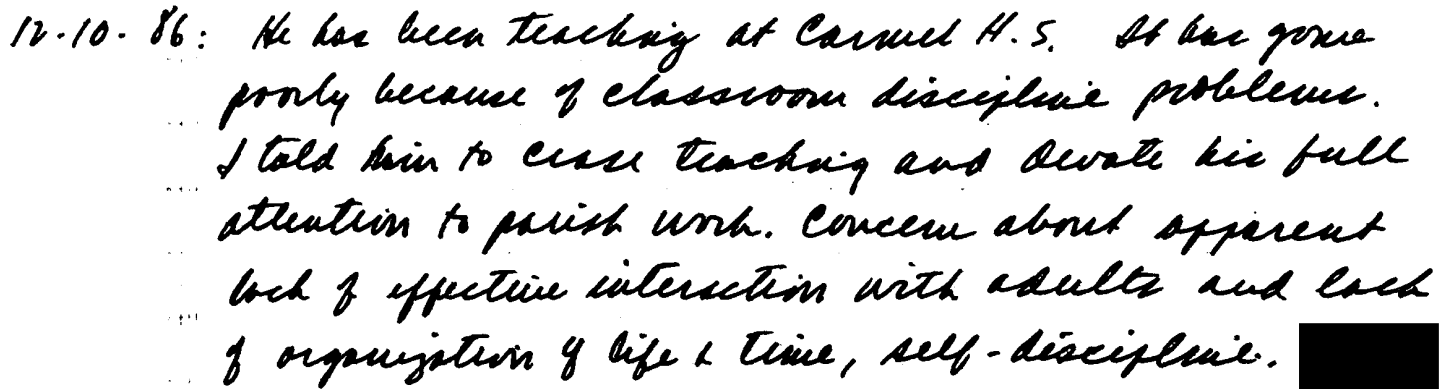 12-10-86: He has been teaching at Carmel H.S. It has gone
poorly because of classroom discipline problems.
I told him to cease teaching and devote his full
attention to parish work. Concern about apparent
lack of effective interaction with adults and lack
of organization of life & time, self-discipline.